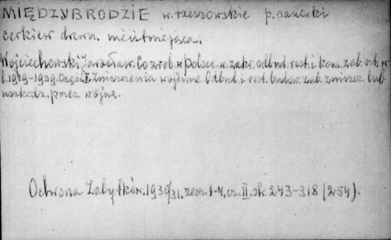 MIĘDZYBRODZIE w. rzeszowskie p. sanocki
cerkiew drewn. nieistniejąca.
Wojciechowski Jarosław. Co zrob. w Polsce w zakr. odbud. rest. i kons. zab. arch. w
l. 1919-1929. Część I Zniszczenia wojenne Odbud. i rest. budow. zab. zniszcz. lub
uszkodz. przez wojnę.
Ochrona Zabytków. 1930/31. zesz. 1-4, cz. II. sk. 243-318 (254).